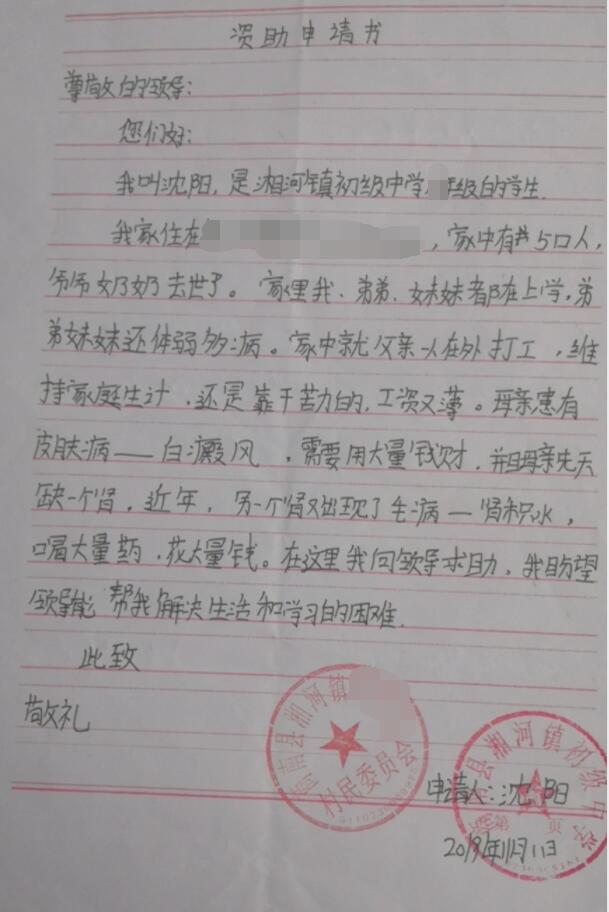 资助申请书
尊敬的领导:
您们好:
我叫沈阳,是湘河镇初级中学 年级的学生.
我家住在 ,家中有共5口人,
爷爷奶奶去世了。家里我、弟弟、妹妹都在上学,弟
弟妹妹还体弱多病。家中就父亲一人在外打工,维
持家庭生计,还是靠干苦力的,工资又薄。母亲患有
皮肤病——白癜风,需要用大量钱财,并且母亲先天
缺一个肾,近年,另一个肾又出现了毛病—肾积水,
喝大量药,花大量钱。在这里我向领导求助,我盼望
领导能帮我解决生活和学习的困难.
此致
敬礼
商南县湘河镇
村民委员会
县湘河镇初级中学
第 页
申请人:沈阳
2019年11月11日